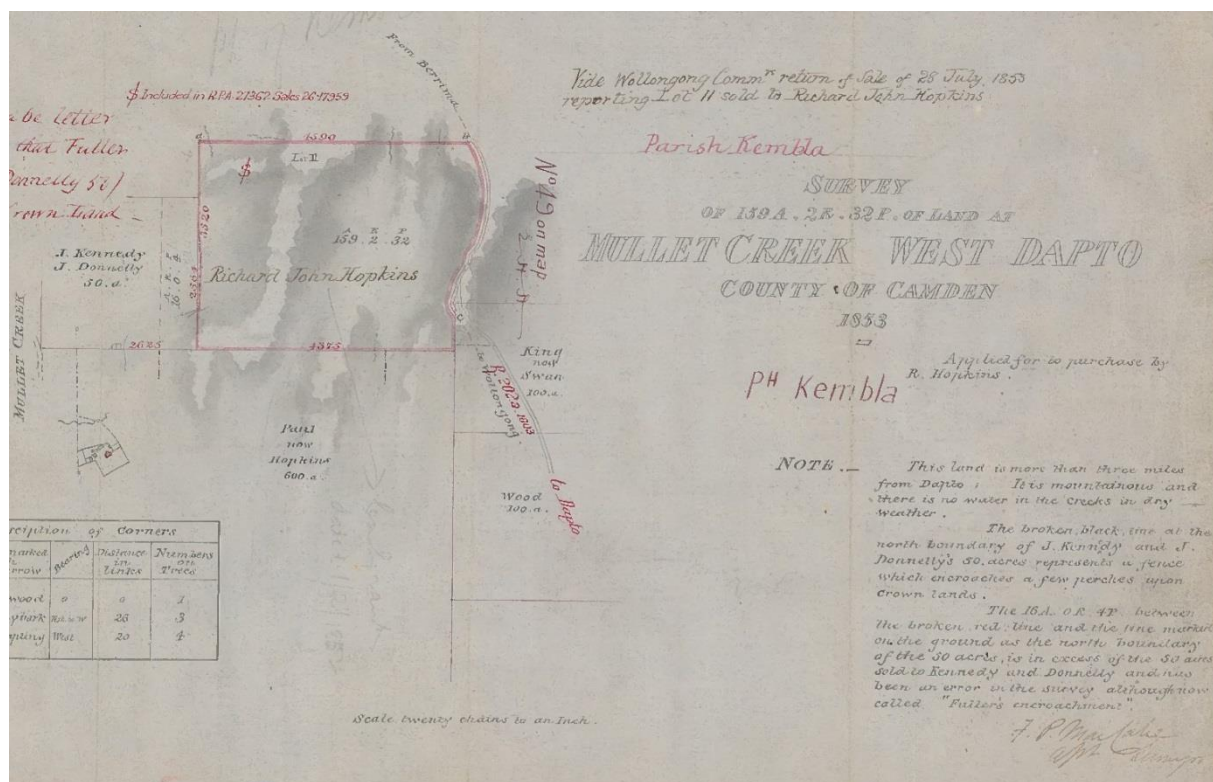 From Berrima
$ Included in R.P.A. 21367 Sales 26-17959
Vide Wollongong Comm<sup>rs</sup> return of Sale of 28 July 1853
reporting Lot 11 sold to Richard John Hopkins
be letter
that Fuller
Donnelly 50/
Crown Land
Parish Kembla
SURVEY
OF 159 A. 2 R. 32 P. OF LAND AT
MULLET CREEK WEST DAPTO
COUNTY OF CAMDEN
1853
Applied for to purchase by
R. Hopkins.
PH Kembla
4590
Lot 11
$
A R P
159. 2. 32
Richard John Hopkins
4375
2625
J. Kennedy
J. Donnelly
50.a.
A. R. P.
16. 0. 4
MULLET CREEK
No 19 on map
King
now
Swan
100.a.
to Wollongong.
R. 2023.1603
to Dapto
Paul
now
Hopkins
600.a.
Wood
100.a.
NOTE.—
This land is more than three miles
from Dapto; It is mountainous and
there is no water in the Creeks in dry
weather.
The broken black line at the
north boundary of J. Kennedy and J.
Donnelly's 50 acres represents a fence
which encroaches a few perches upon
Crown lands.
The 16A. 0R. 4P. between
the broken red line and the line marked
on the ground as the north boundary
of the 50 acres, is in excess of the 50 acres
sold to Kennedy and Donnelly and has
been an error in the survey although now
called "Fuller's encroachment".
cription of Corners
marked
rrow
Bearing
Distance
in
Links
Numbers
on
Trees
wood 0 0 1
ybark 26 3
pling West 20 4
Scale twenty chains to an Inch.